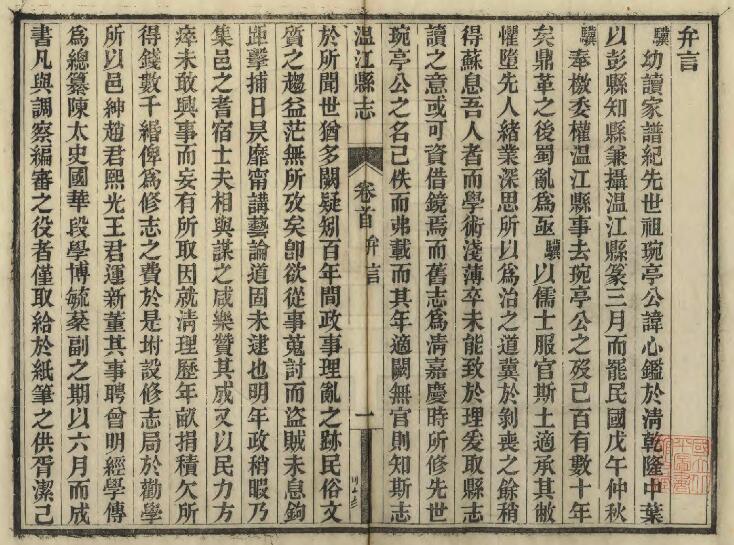 弁言
驥幼讀家譜紀先世祖琬亭公諱心鑑於清乾隆中葉
以彭縣知縣兼攝温江縣篆三月而罷民國戊午仲秋
驥奉檄委權温江縣事去琬亭公之歿已百有數十年
矣鼎革之後蜀亂爲亟驥以儒士服官斯土適承其敝
懼墮先人緒業深思所以爲治之道冀於剝喪之餘稍
得蘇息吾人者而學術淺薄卒未能致於理爰取縣志
讀之意或可資借鏡焉而舊志爲清嘉慶時所修先世
琬亭公之名已佚而弗載而其年適闕無官則知斯志
温江縣志
卷首 弁言
一
於所聞世猶多闕疑矧百年間政事理亂之跡民俗文
質之趨益茫無所攷矣卽欲從事蒐討而盜賊未息鉤
距擊捕日昃靡甯講藝論道固未逮也明年政稍暇乃
集邑之耆宿士夫相與謀之咸樂贊其成又以民力方
瘁未敢興事而妄有所取因就清理歷年畝捐積欠所
得錢數千緡俾爲修志之費於是坿設修志局於勸學
所以邑紳趙君熙光王君運新董其事聘曾明經學傳
爲總纂陳太史國華段學博毓棻副之期以六月而成
書凡與調察編審之役者僅取給於紙筆之供胥潔己